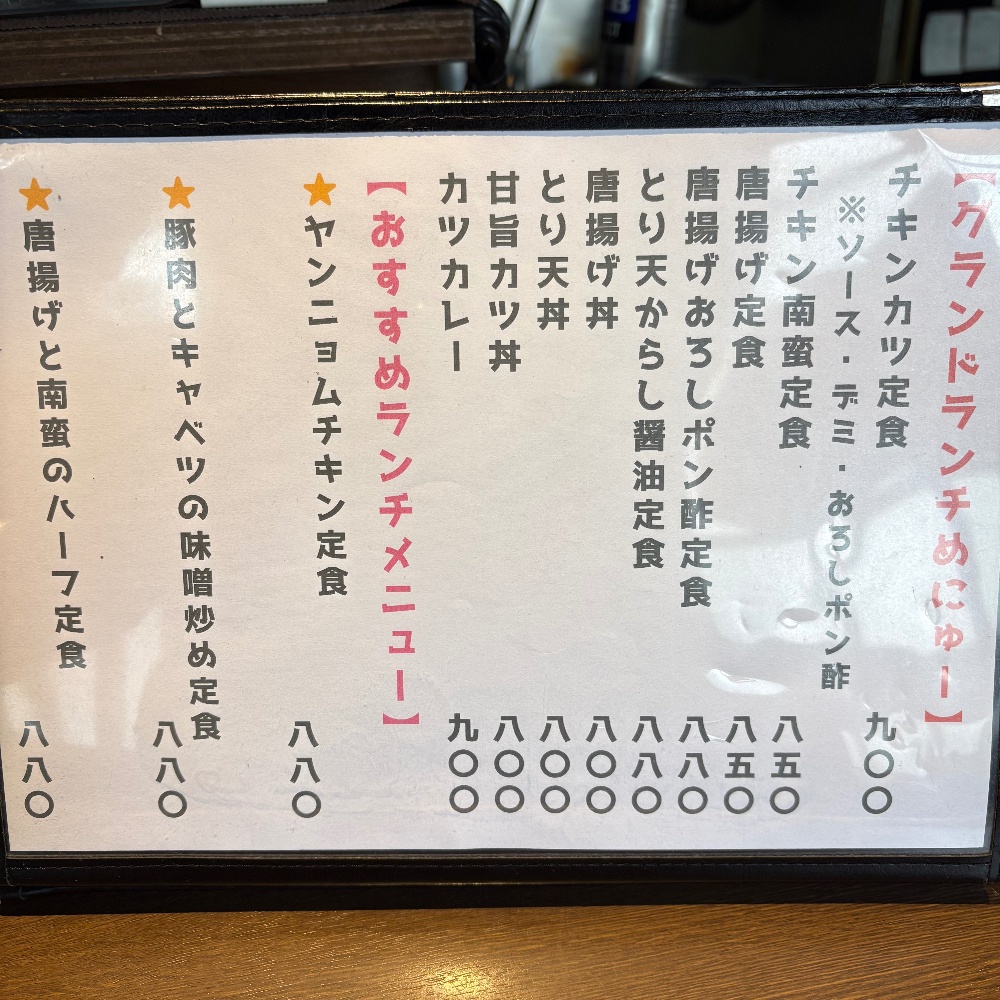 【グランドランチめにゅー】
チキンカツ定食 九〇〇
※ソース・デミ・おろしポン酢
チキン南蛮定食 八五〇
唐揚げ定食 八五〇
唐揚げおろしポン酢定食 八八〇
とり天からし醤油定食 八八〇
唐揚げ丼 八〇〇
とり天丼 八〇〇
甘旨カツ丼 八〇〇
カツカレー 九〇〇
【おすすめランチメニュー】
★ヤンニョムチキン定食 八八〇
★豚肉とキャベツの味噌炒め定食 八八〇
★唐揚げと南蛮のハーフ定食 八八〇